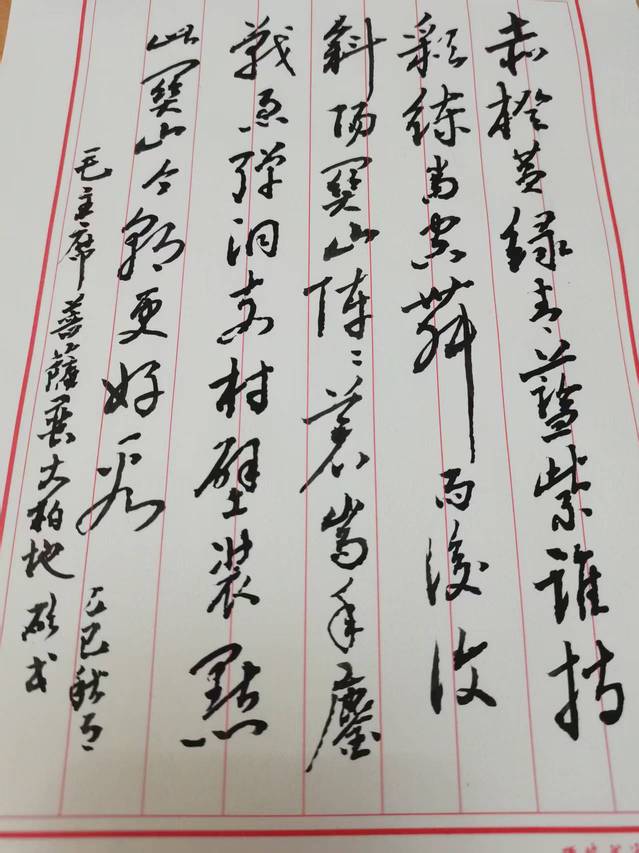 赤橙黄绿青蓝紫谁持
彩练当空舞雨後復
斜阳關山阵阵苍當年鏖
戰急弹洞前村壁装點
此關山今朝更好看
毛主席菩萨蛮大柏地
乙巳秋月